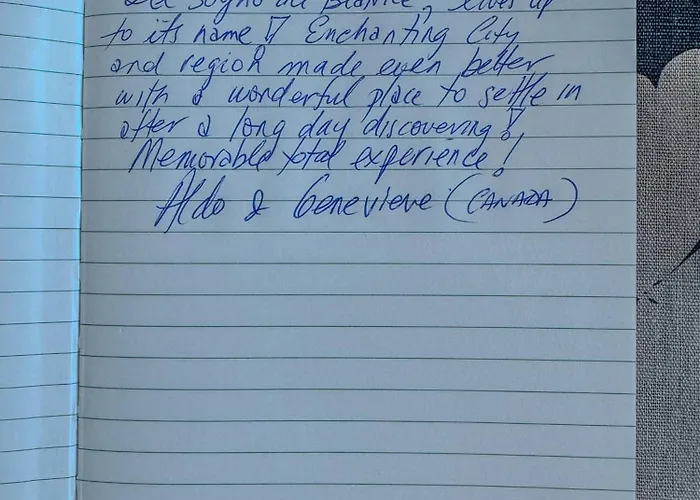 Del Sogno delle Bianche, lives up
to its name! Enchanting City
and region made even better
with a wonderful place to settle in
after a long day discovering!
Memorable total experience!
Aldo & Genevieve (CANADA)